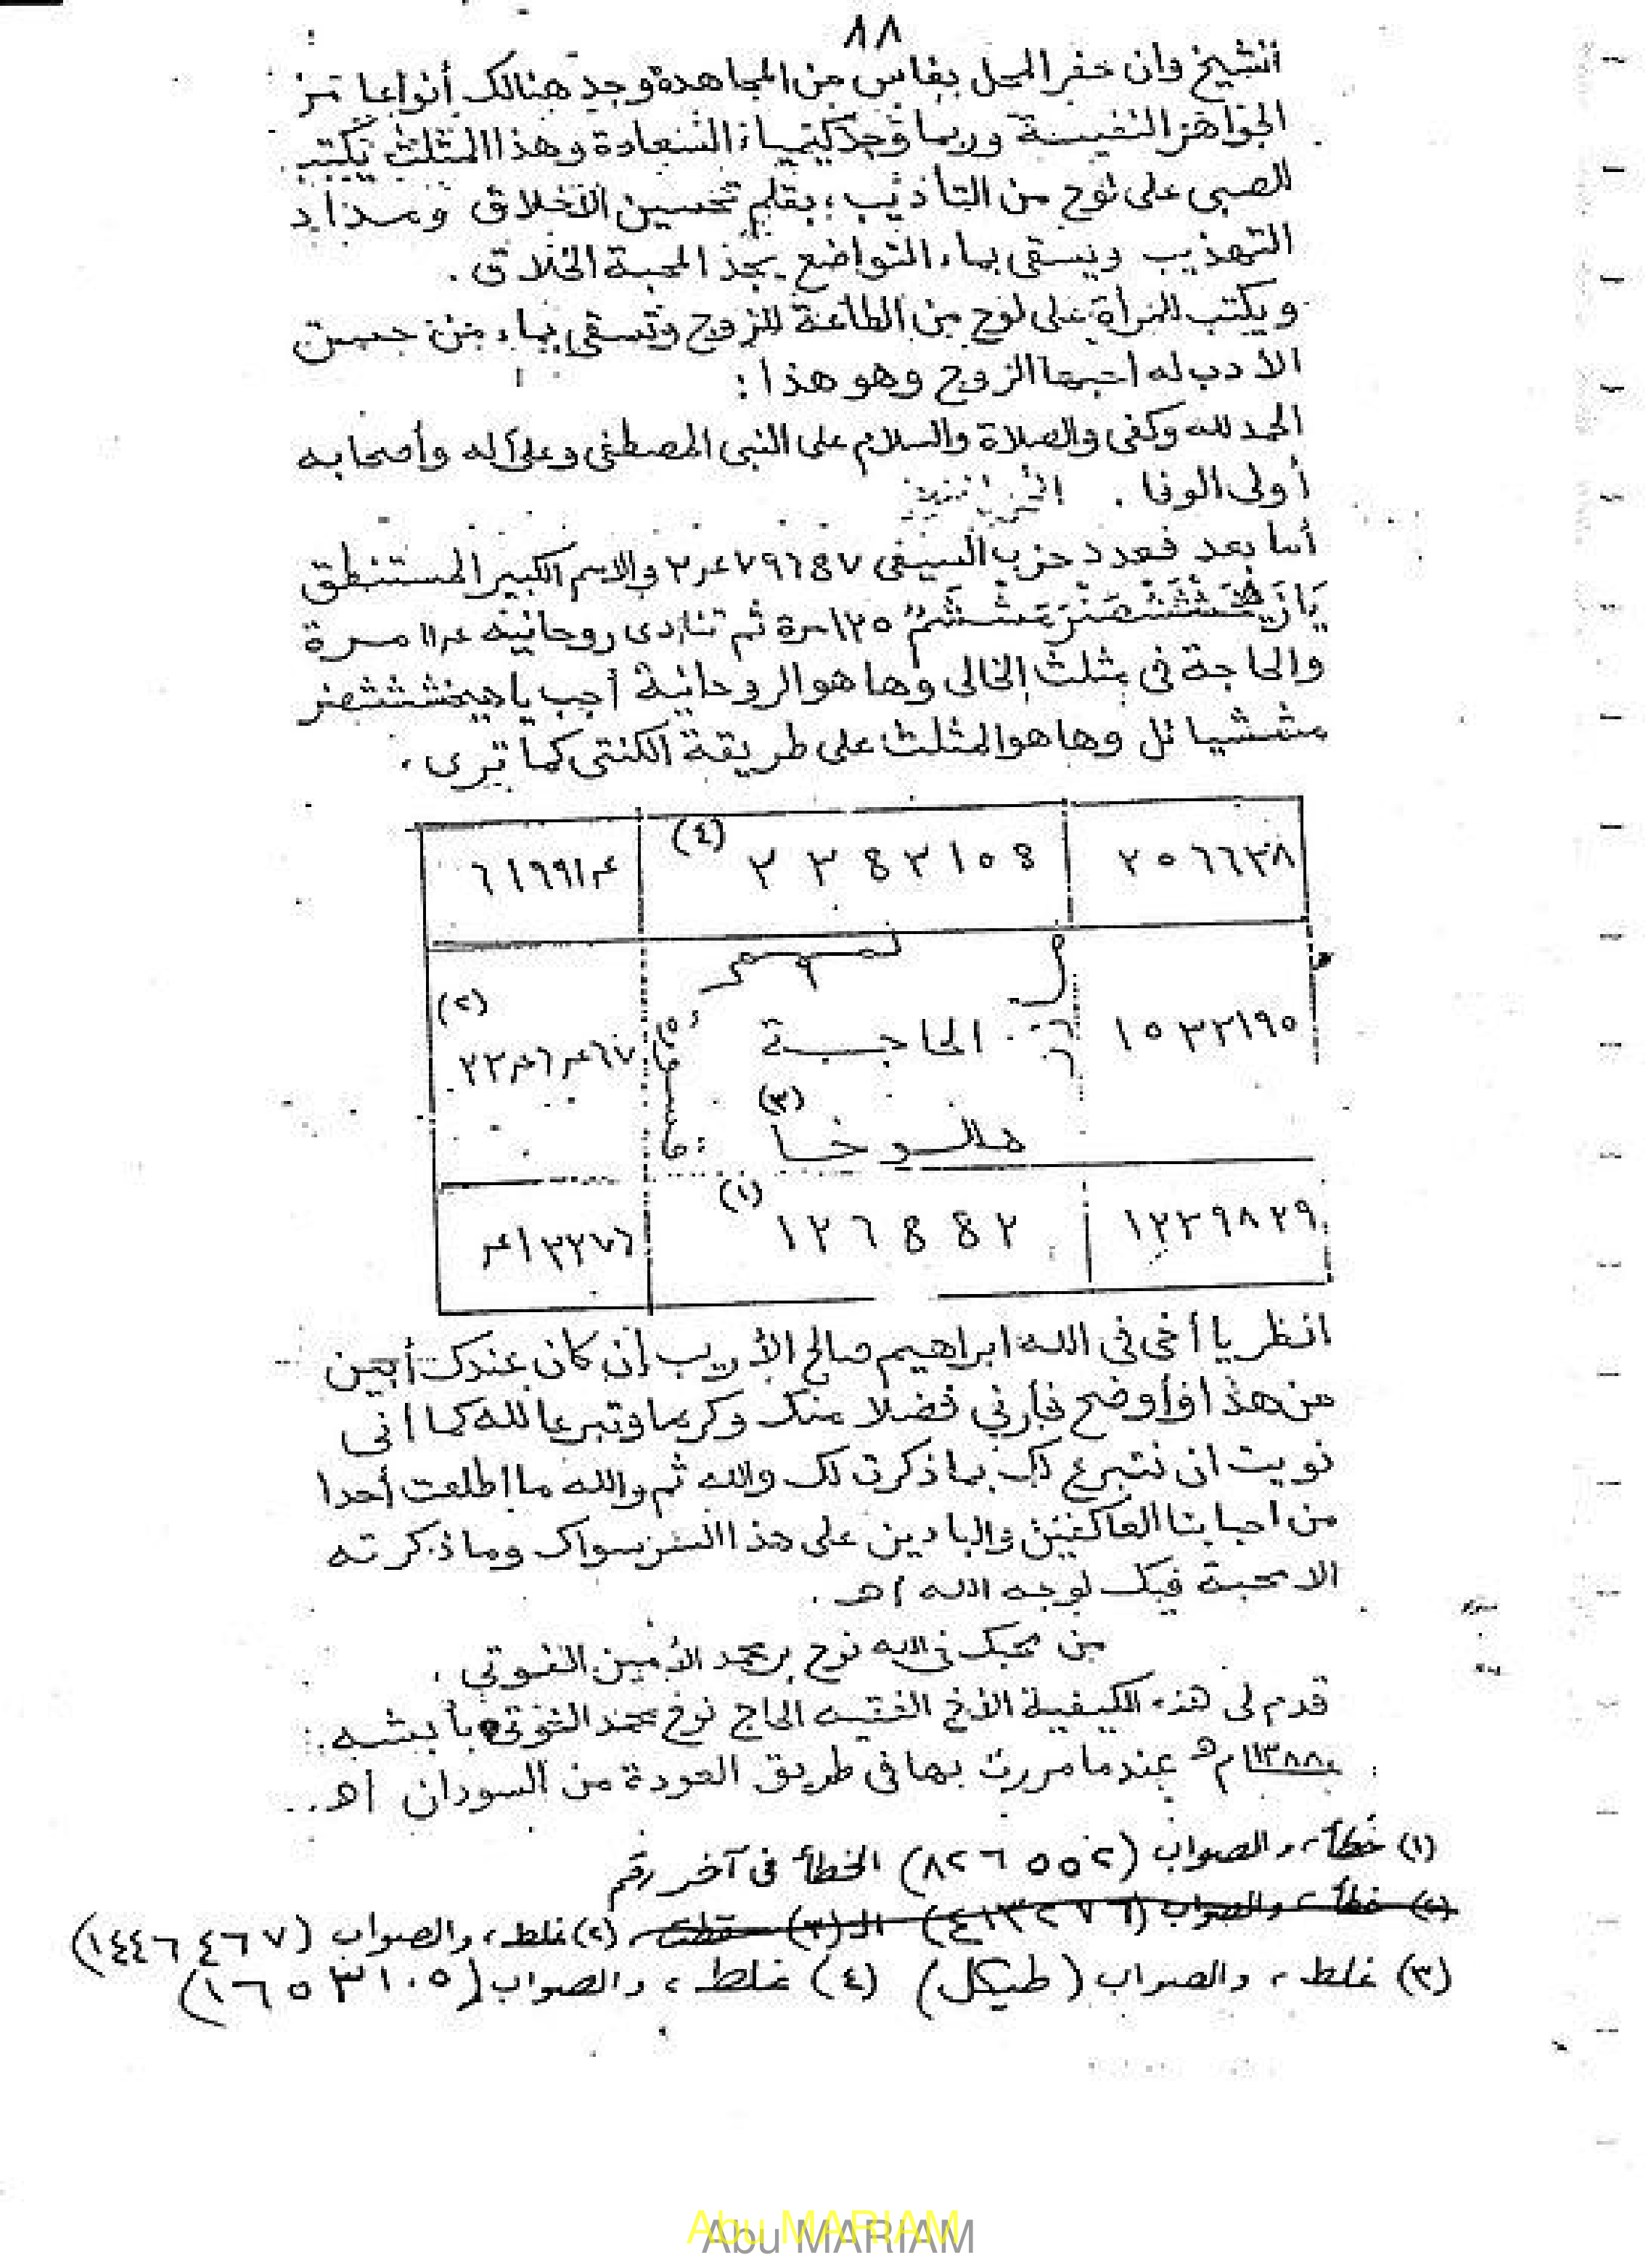 ٨٨
الشيخ وان حفر المحل بفاس من المجاهدة وجد هنالك أنواعا من
الجواهر النفيسة وربما وجد كيمياء السعادة وهذا المثلث يكتب
للصبى على لوح من التأذيب، بقلم تحسين الأخلاق ومداد
التهذيب ويسقى بماء التواضع يجد المحبة الخلاق .
ويكتب للمرأة على لوح من الطاعة للزوج وتسقى بماء من حسن
الأدب له احبها الزوج وهو هذا :
الحمد لله وكفى والصلاة والسلام على النبى المصطفى وعلى آله وأصحابه
أولى الوفا .
أما بعد فعدد حزب السيفى والاسم الكبير المستنطق
١٢٥ مرة ثم تنادى روحانيته مرة
والحاجة فى مثلث الخالى وها هو الروحانية أجب يا
وها هو المثلث على طريقة الكنتى كما ترى .
٢٥٦٦٣٩٨ (٤)
١٥٣٣١٩٥ الحاجة (٢)
(٣)
١٢٣٩٨٢٩ (١)
انظر يا أخى فى الله ابراهيم صالح الأريب إن كان عندك أبين
من هذا أو أوضح فأرني فضلا منك وكرما وتبرعا لله كما انى
نويت ان نتبرع لك بما ذكرت لك والله ثم والله ما اطلعت أحدا
من احبابنا العاكفين والبادين على هذا السر سواك وما ذكرته
الا محبة فيك لوجه الله اهـ .
من محبك فى الله نوح بن محمد الأمين الفوتي .
قدم لى هذه الكيفية الأخ الفقيه الحاج نوح محمد الفوتي بأبشه
١٣٨٨هـ عندما مررت بها فى طريق العودة من السودان اهـ ..
(١) خطأ، والصواب (٨٢٦٥٥٢) الخطأ فى آخر رقم
(٢) خطأ، والصواب (٤١٣٢٧٦) الـ(٣) (٢) غلط، والصواب (١٤٤٦٤٦٧)
(٣) غلط، والصواب (طيكل) (٤) غلط، والصواب (١٦٥٣١٠٥)
Abu MARIAM
Abu MARIAM